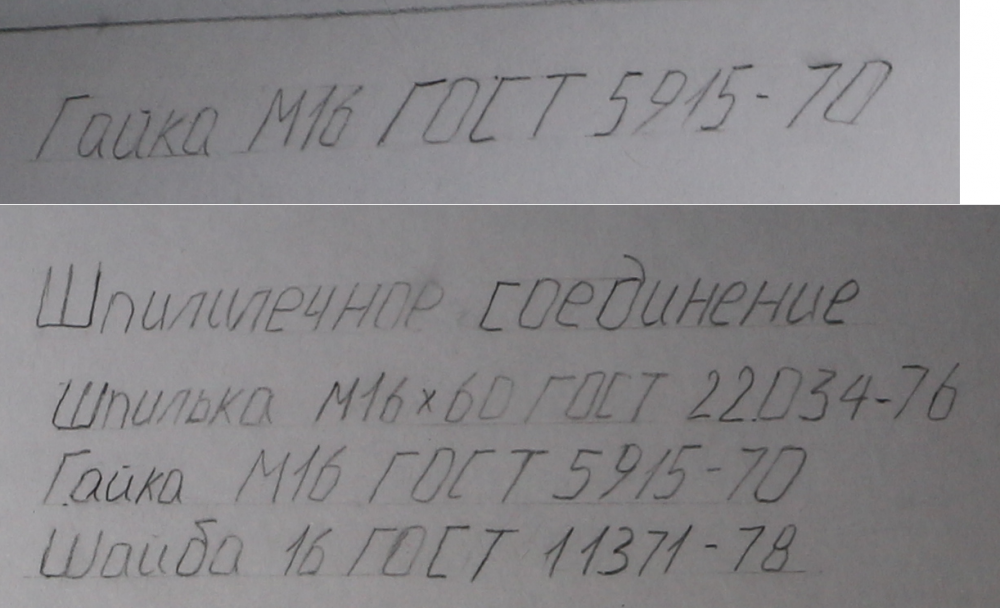 Гайка М16 ГОСТ 5915-70
Шпилилечное соединение
Шпилька М16х60 ГОСТ 22034-76
Гайка М16 ГОСТ 5915-70
Шайба 16 ГОСТ 11371-78